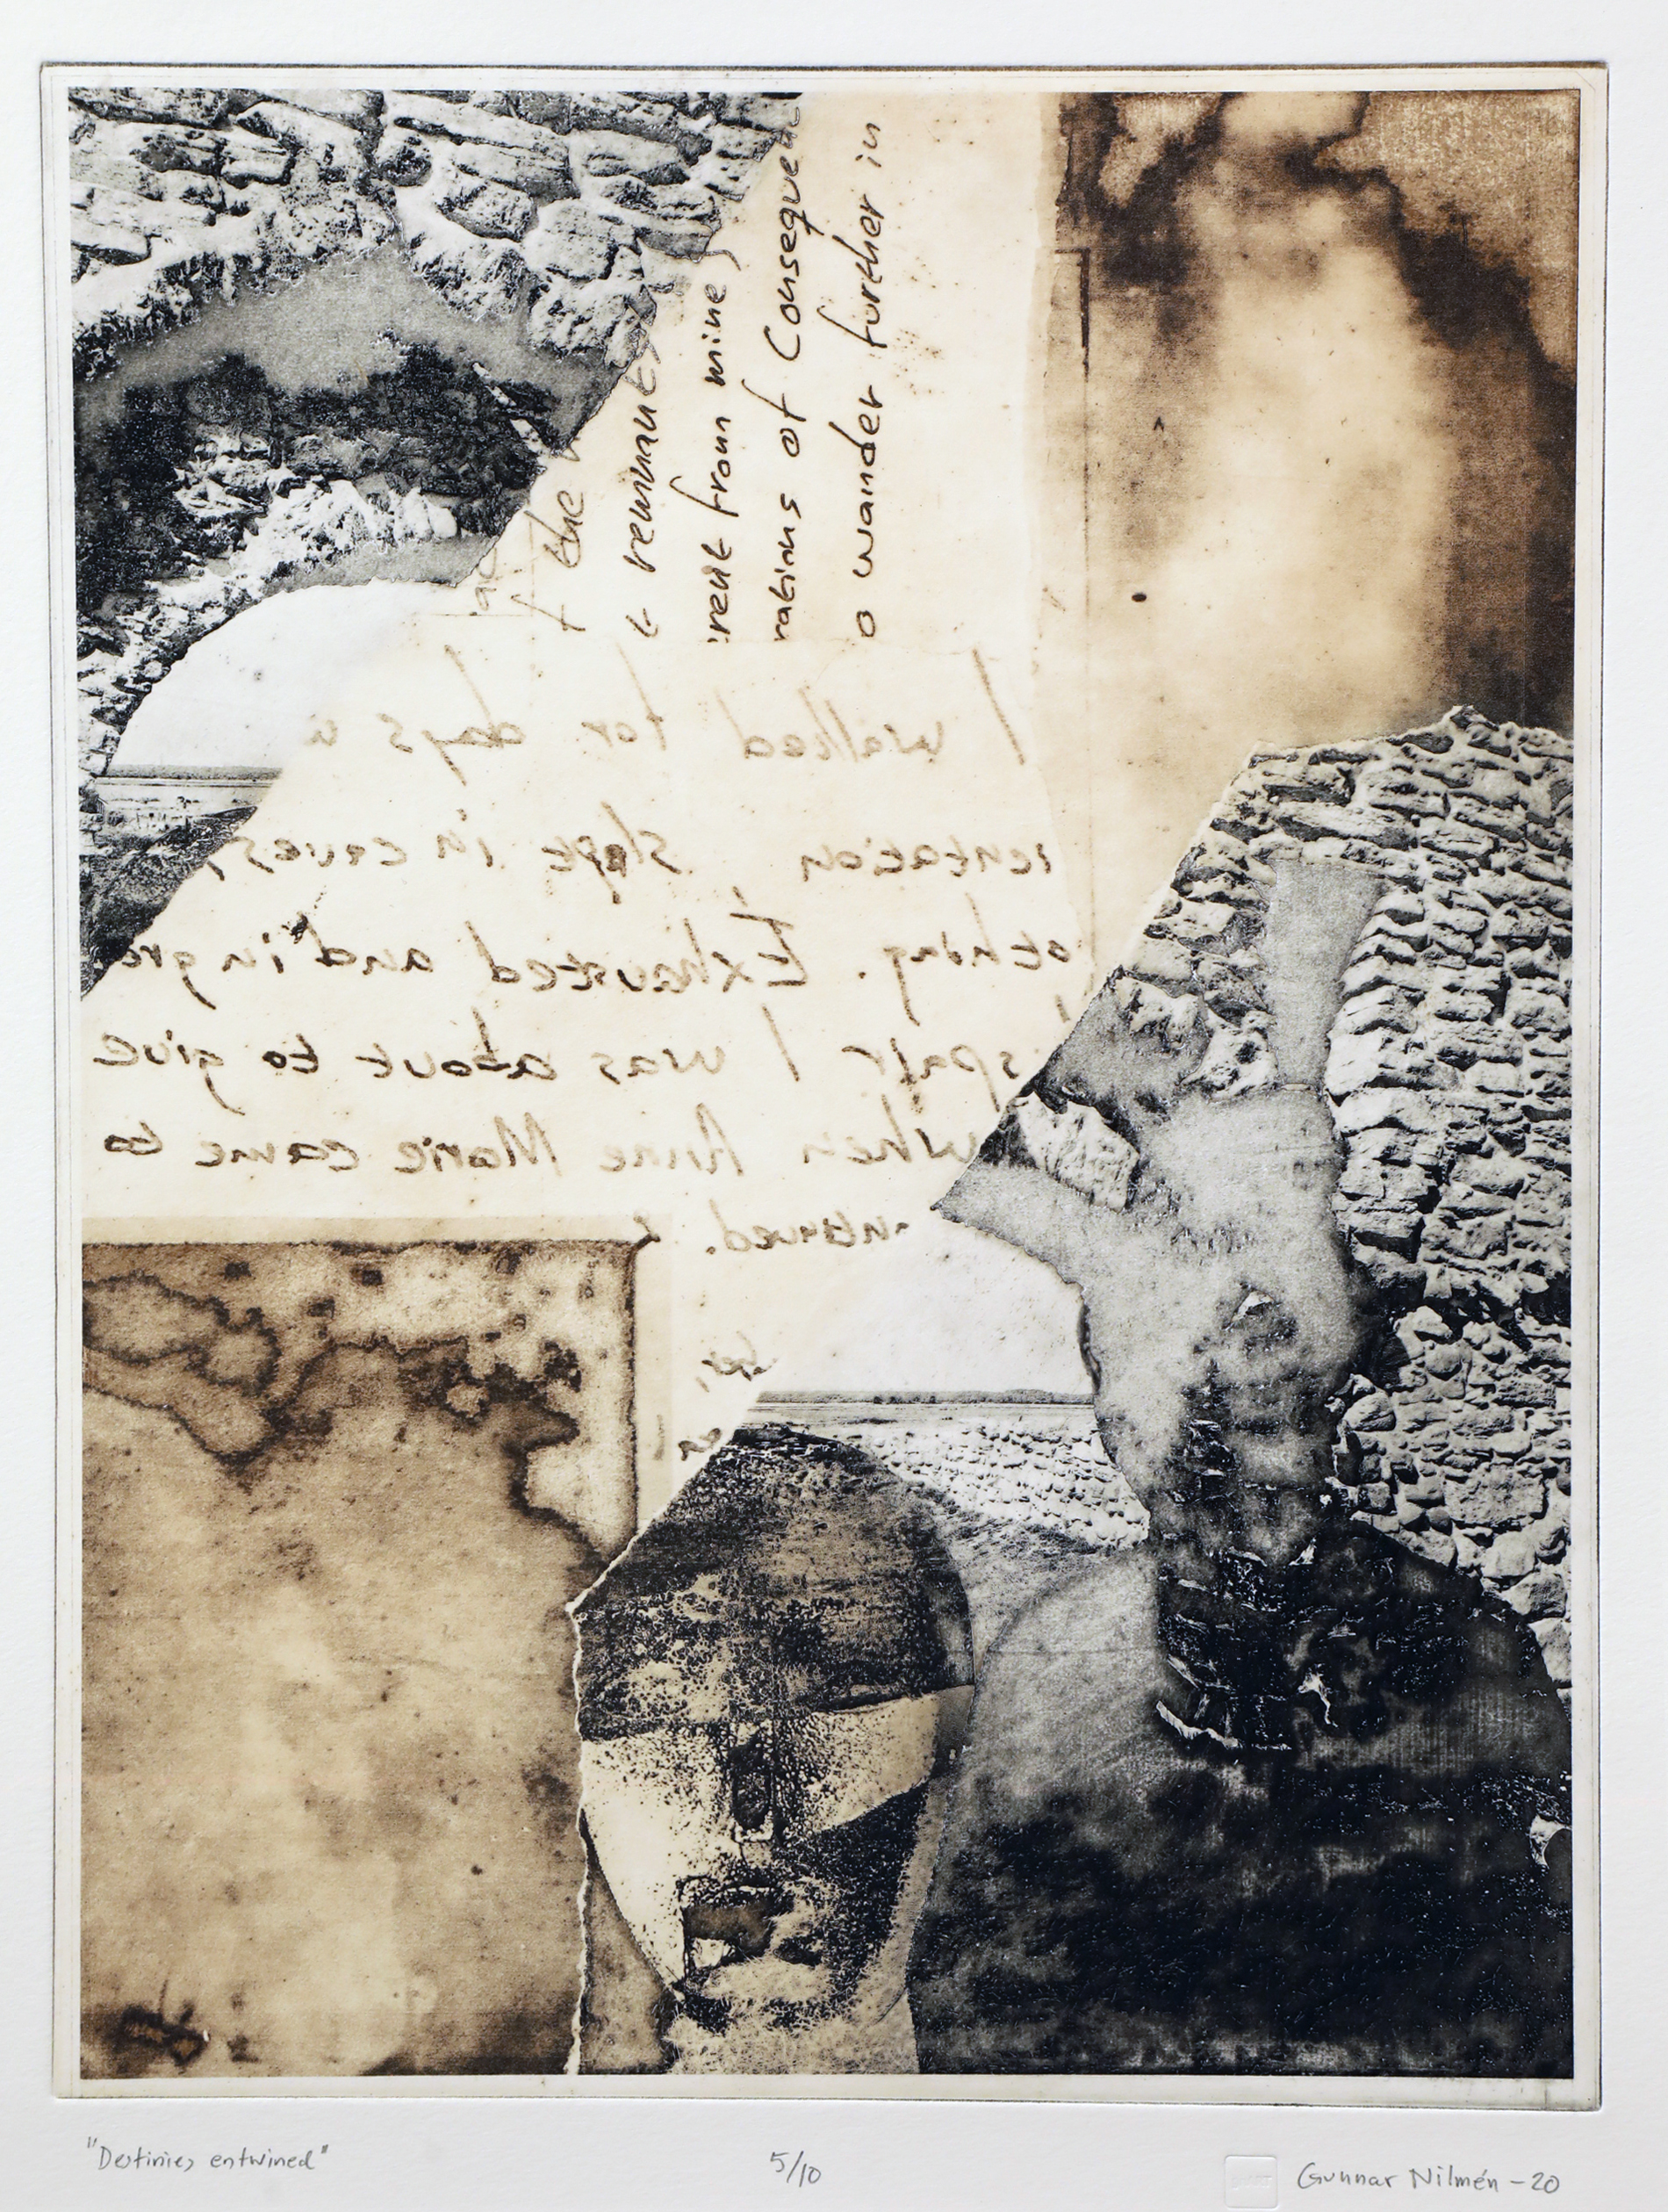 the
t remnants
rent from mine,
rations of Consequen
o wander further in
I walked for days
ientation, slept in caves,
othing. Exhausted and in gre
spair I was about to give
when Anne Marie came to
her,
"Destinies entwined"
5/10
Gunnar Nilmén -20